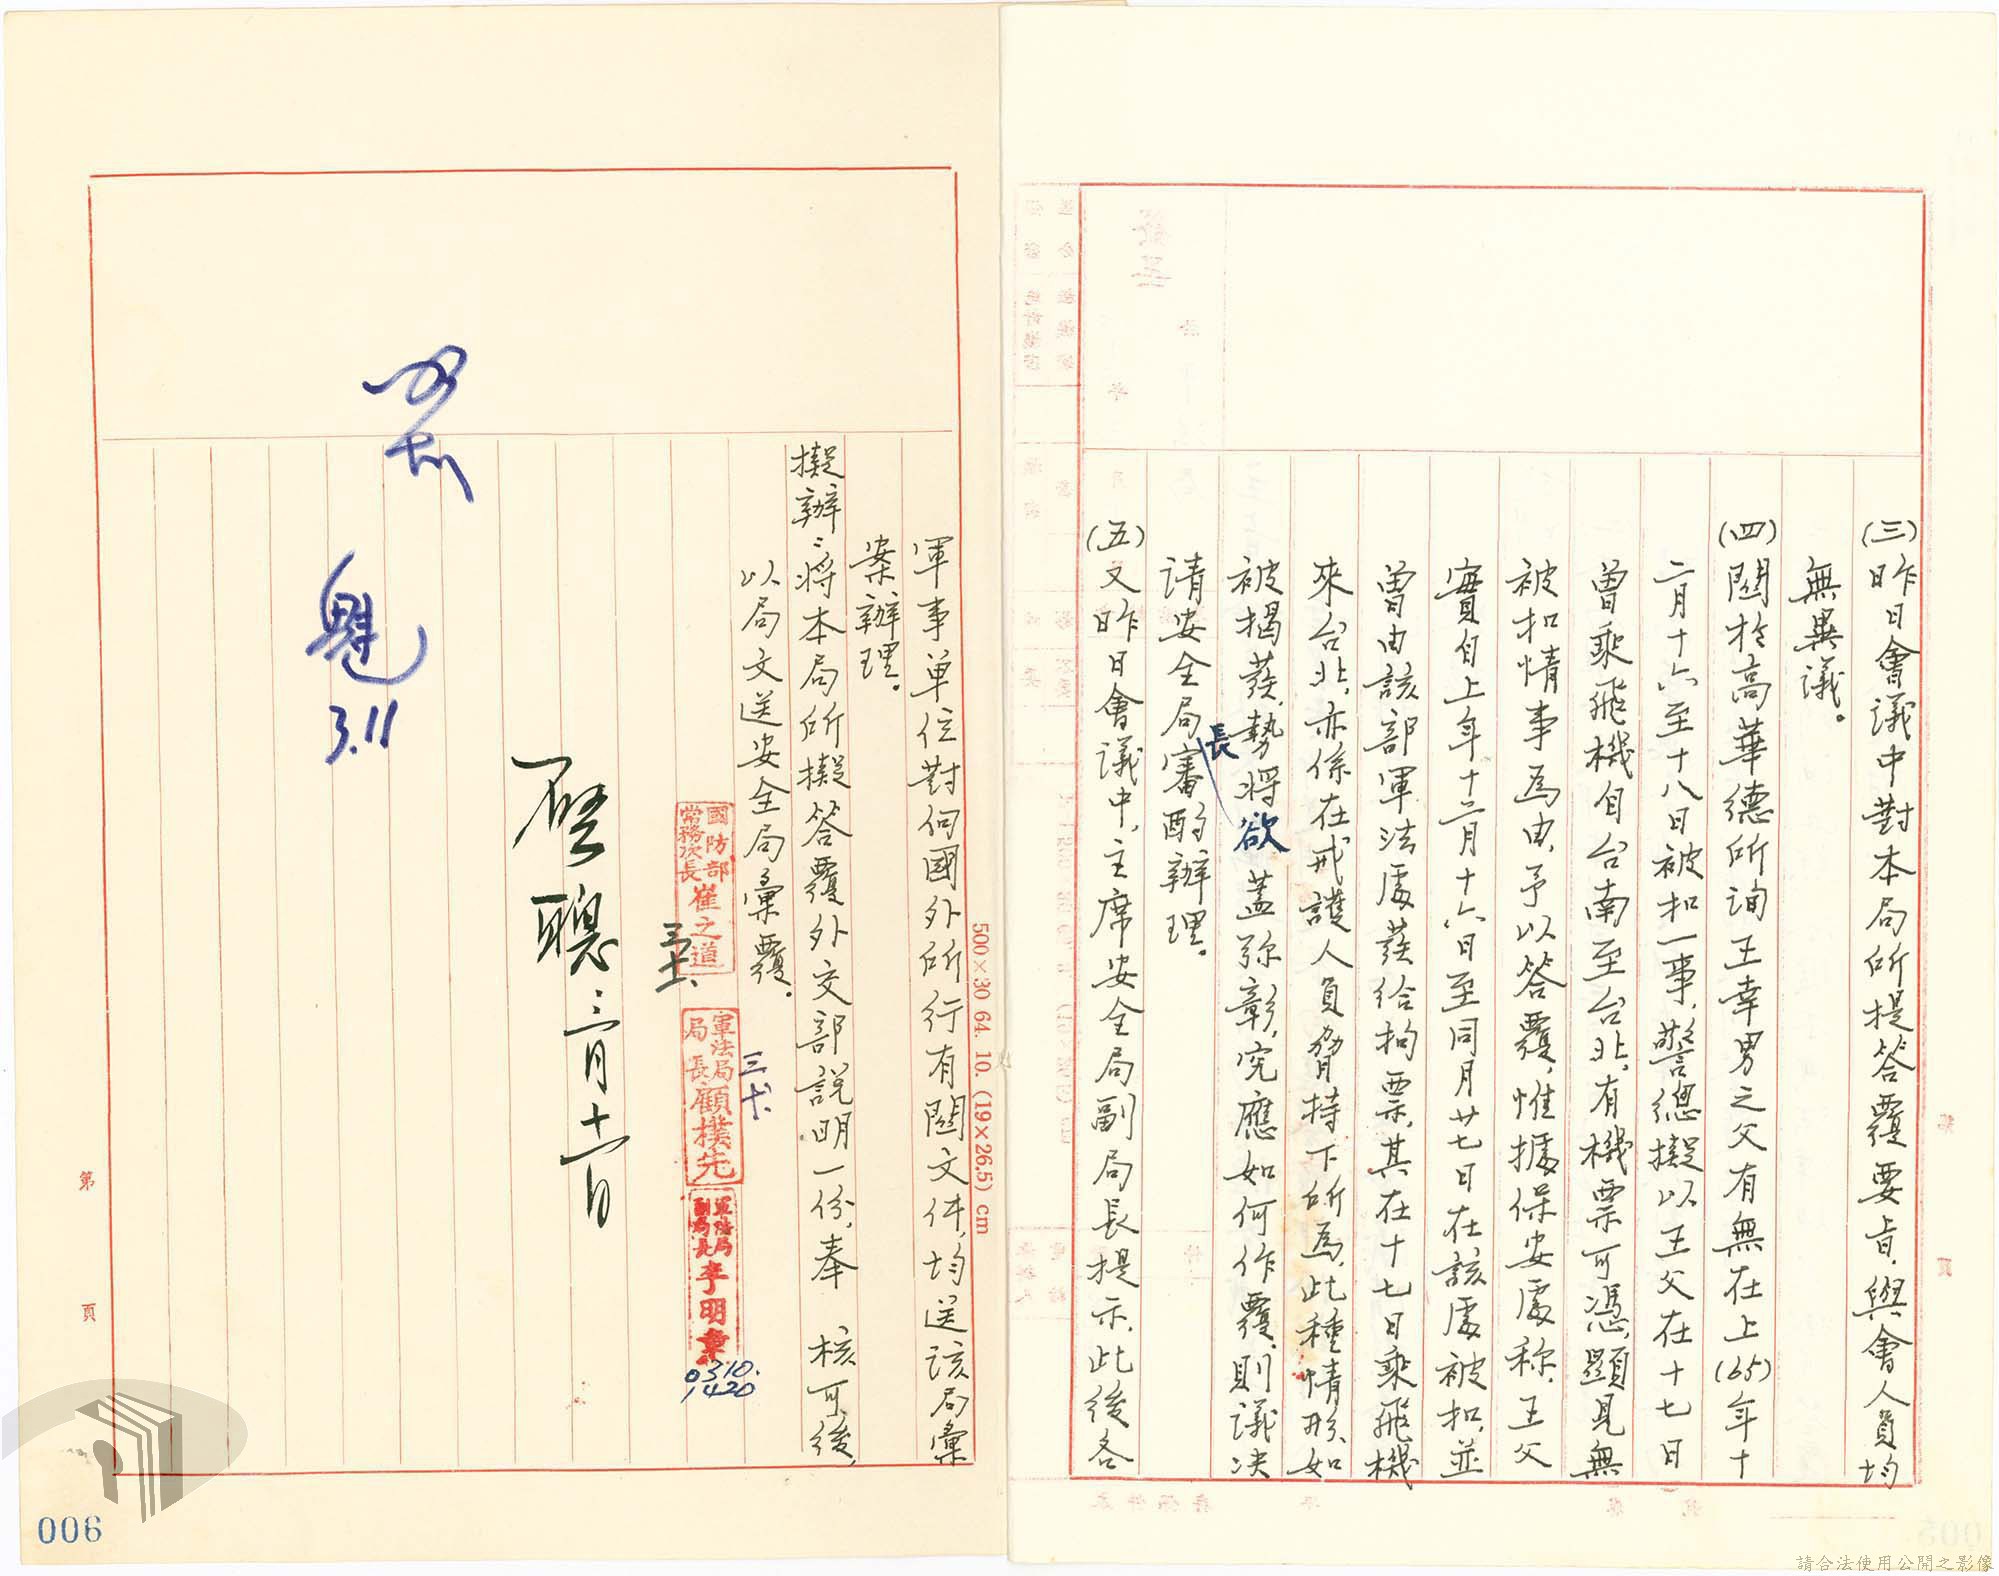 (三)昨日會議中對本局所提答覆要旨,與會人員均
無異議。
(四)關於高華德所詢王幸男之父有無在上(65)年十
二月十六至十八日被扣一事,警總擬以王父在十七日
曾乘飛機自台南至台北,有機票可憑,顯見無
被扣情事為由,予以答覆,惟據保安處称,王父
實自上年十二月十六日至同月廿七日在該處被扣,並
曾由該部軍法處發給拘票,其在十七日乘飛機
來台北,亦係在戒護人員脅持下所為,此種情形,如
被揭發,勢將欲蓋弥彰,究應如何作覆,則議決
請安全局長審酌辦理。
(五)又昨日會議中,主席安全局副局長提示,此後各
軍事單位對何國外所行有關文件,均送該局彙
案辦理。
擬辦:將本局所擬答覆外交部說明一份,奉 核可後,
以局文送安全局彙覆。
國防部
常務次長
崔之道
軍法局
局長
顧樸先
三、十、
軍法局
副局長
李明章
0310.
1420
三月十一日
3.11
500×30 64. 10. (19×26.5) cm
第 頁
006
005
請合法使用公開之影像